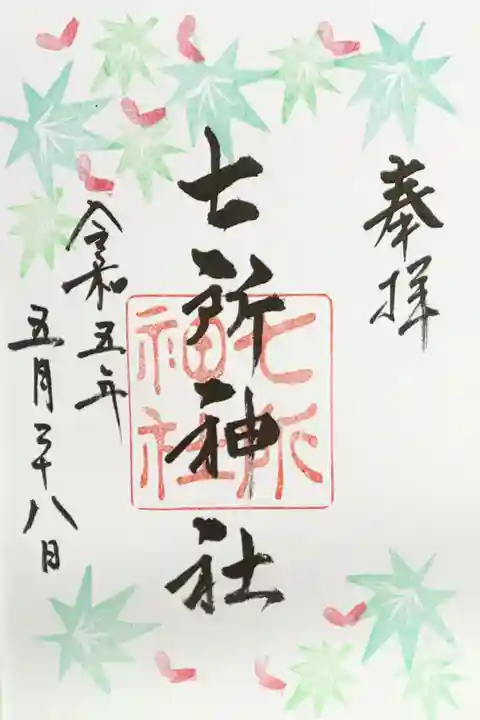 奉拝
七所神社
七所神社
令和五年
五月二十八日